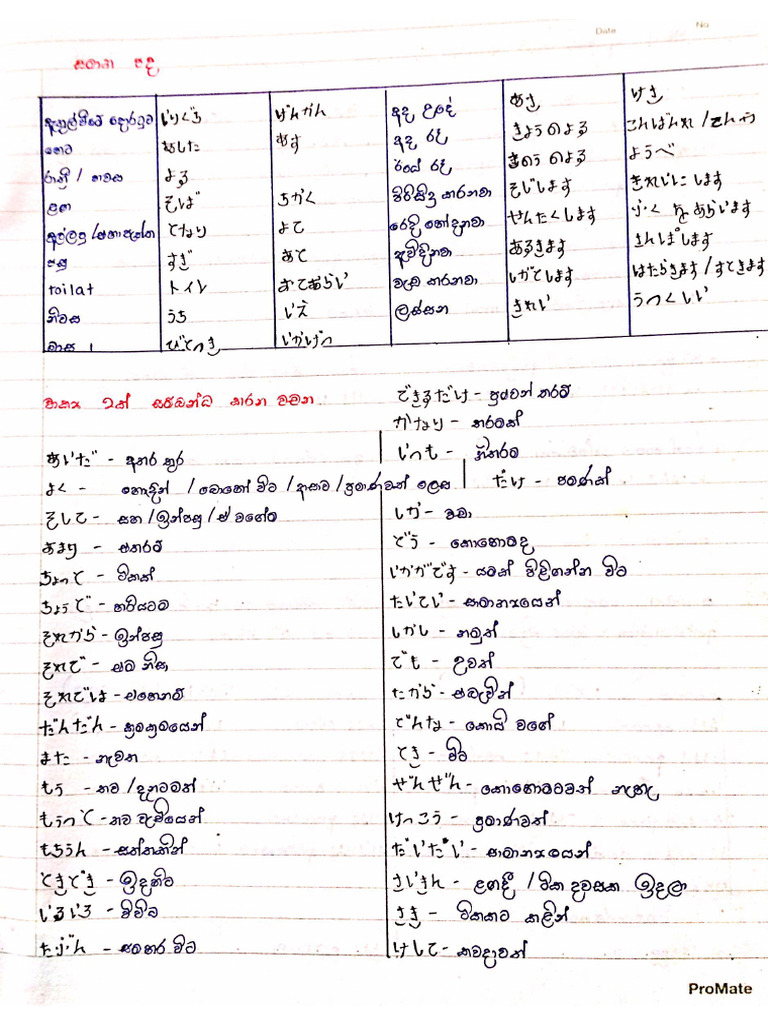 Date No
සමාන පද
ඇතුල්වීමේ දොරටුව いりぐち げんかん අද උදේ けさ
හෙට あした あす අද රෑ きょうのよる こんばん
රාත්‍රී / තවස よる ඊයේ රෑ きのうのよる ようべ
ළඟ そば ちかく පිරිසිදු කරනවා そじします きれいにします
となり よこ රෙදි හෝදනවා せんたくします ふくをあらいます
පසු すぎ あと ඇවිදිනවා あるきます さんぽします
toilat トイレ おてあらい වැඩ කරනවා しごとします はたらきます
නිවස うち いえ ලස්සන きれい うつくしい
මාස 1 いかげつ
වාක්‍ය 2ක් සම්බන්ධ කරන වචන
できるだけ - පුළුවන් තරම්
かなり - තරමක්
あいだ - අතර තුර
いつも - නිතරම
よく - හොඳින් / බොහෝ විට / ආසාව / ප්‍රමාණවත් ලෙස
だけ - පමණක්
そして - සහ / ඉන්පසු / ඒ වගේම
しか - පමණ
あまり - එතරම්
どう - කොහොමද
ちょっと - ටිකක්
いかがです - යමක් පිළිගන්න විට
ちょうど - හරියටම
たいてい - සාමාන්‍යයෙන්
それから - ඉන්පසු
しかし - නමුත්
それで - එම නිසා
でも - උවත්
それでは - එහෙනම්
だから - එබැවින්
だんだん - ක්‍රමක්‍රමයෙන්
どんな - කොයි වගේ
また - නැවත
とき - විට
もう - තව / දැනටමත්
ぜんぜん - කොහොමටවත් නැහැ
もっと - තව වැඩියෙන්
けっこう - ප්‍රමාණවත්
もちろん - සත්තකින්
だいたい - සාමාන්‍යයෙන්
ときどき - ඉඳහිට
さいきん - ළඟදී / ටික දවසක ඉදලා
いろいろ - විවිධ
さき - ටිකකට කලින්
たぶん - සමහර විට
けして - කවදාවත්
ProMate